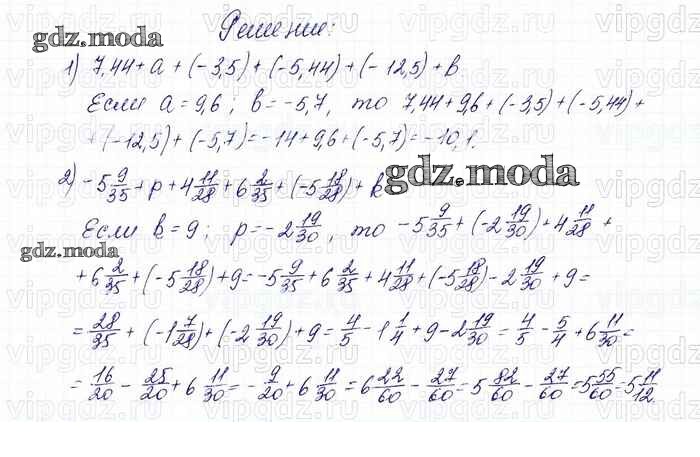 Решение:
gdz.moda
1) 7,44 + a + (-3,5) + (-5,44) + (-12,5) + b
Если a = 9,6 ; b = -5,7, то 7,44 + 9,6 + (-3,5) + (-5,44) +
+ (-12,5) + (-5,7) = -14 + 9,6 + (-5,7) = -10,1.
gdz.moda
2) -5 9/35 + p + 4 11/28 + 6 2/35 + (-5 18/28) + k
Если k = 9 ; p = -2 19/30, то -5 9/35 + (-2 19/30) + 4 11/28 +
gdz.moda
+ 6 2/35 + (-5 18/28) + 9 = -5 9/35 + 6 2/35 + 4 11/28 + (-5 18/28) - 2 19/30 + 9 =
= 28/35 + (-1 7/28) + (-2 19/30) + 9 = 4/5 - 1 1/4 + 9 - 2 19/30 = 4/5 - 5/4 + 6 11/30 =
= 16/20 - 25/20 + 6 11/30 = - 9/20 + 6 11/30 = 6 22/60 - 27/60 = 5 82/60 - 27/60 = 5 55/60 = 5 11/12.